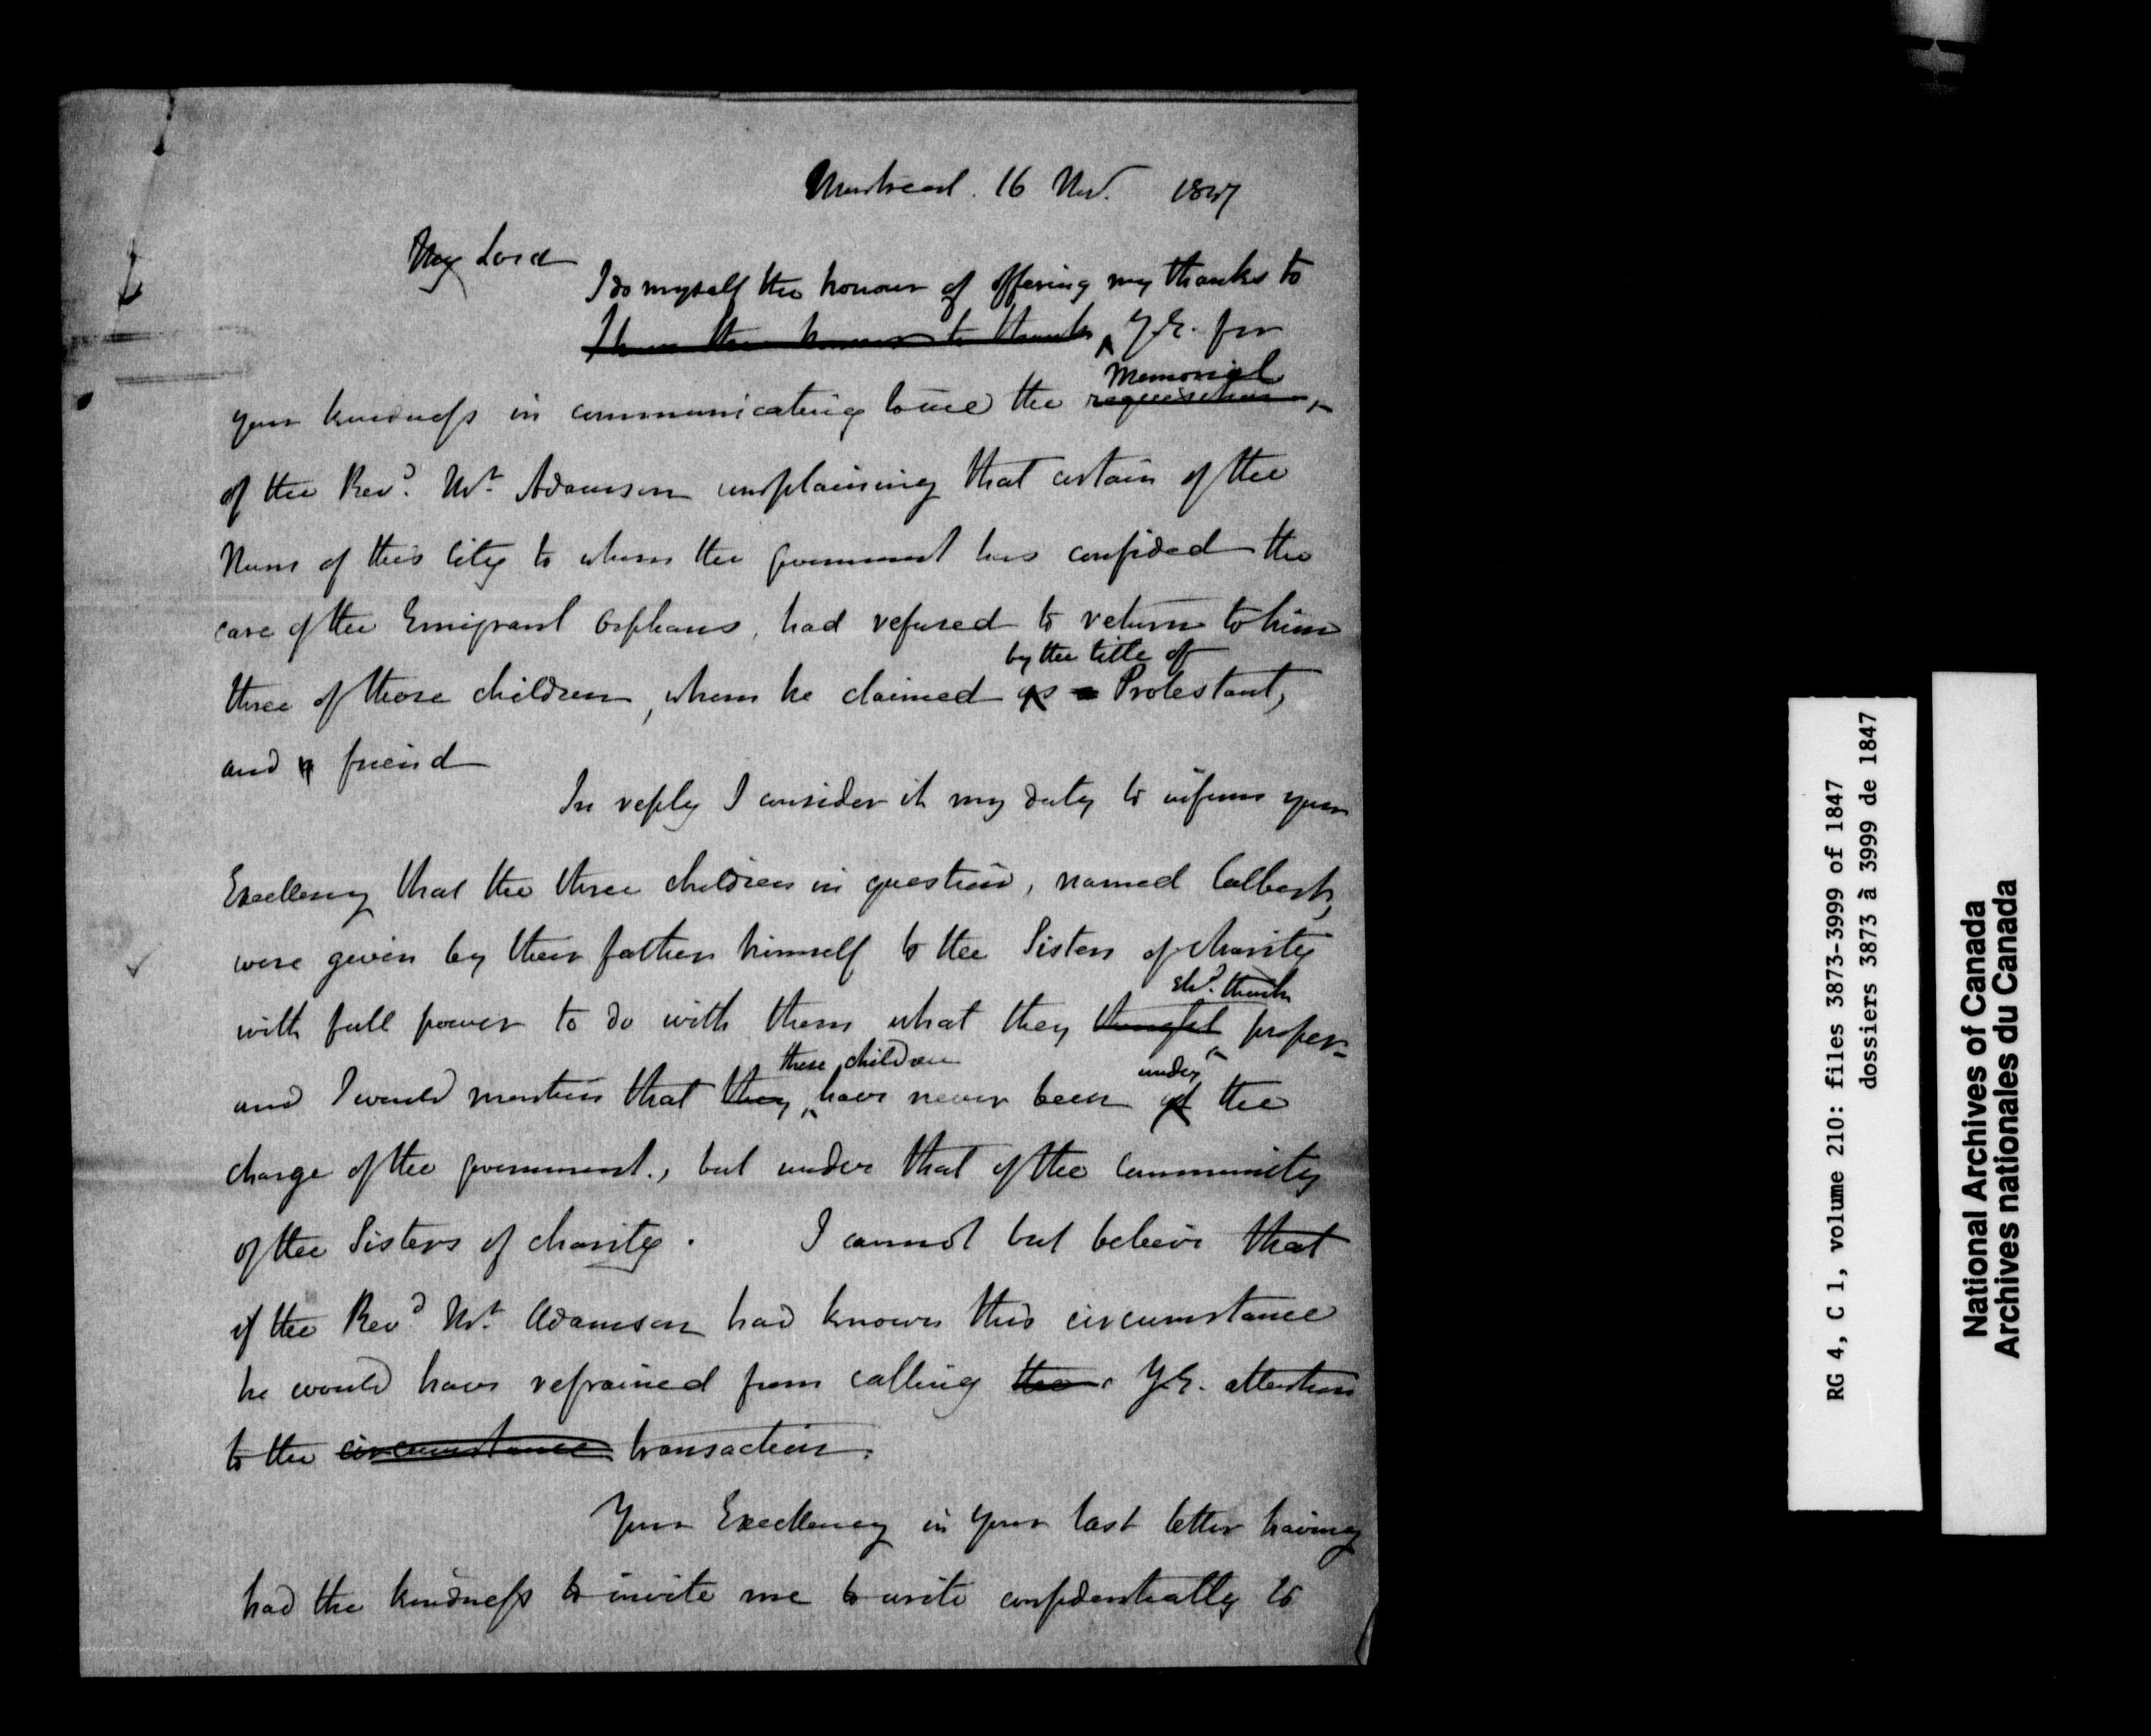 Montreal. 16 Nov. 1847
My Lord
I do myself the honour of offering my thanks to
I have the honour to thank Y.E. for
Memorial
your kindness in communicating to me the requisition
of the Revd. Mr. Adamson complaining that certain of the
Nuns of this City to whom the government has confided the
care of the Emigrant Orphans, had refused to return to him
by the title of
three of those children, whom he claimed as a Protestant,
and friend
In reply I consider it my duty to inform your
Excellency that the three children in question, named Calbert,
were given by their father himself to the Sisters of Charity
shd. think
with full power to do with them what they thought proper
these children under
and I would mention that they have never been at the
charge of the government., but under that of the Community
of the Sisters of Charity. I cannot but believe that
if the Revd. Mr. Adamson had known this circumstance
he would have refrained from calling the Y.E. attention
to the circumstance transaction.
Your Excellency in your last letter having
had the kindness to invite me to write confidentially to
RG 4, C 1, volume 210: files 3873-3999 of 1847
dossiers 3873 à 3999 de 1847
National Archives of Canada
Archives nationales du Canada